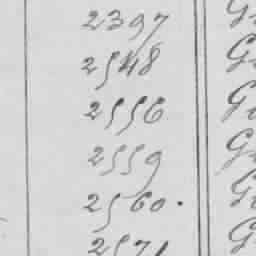 2397 G
2548 G
2556 G
2559 G
2560. G
2571 G